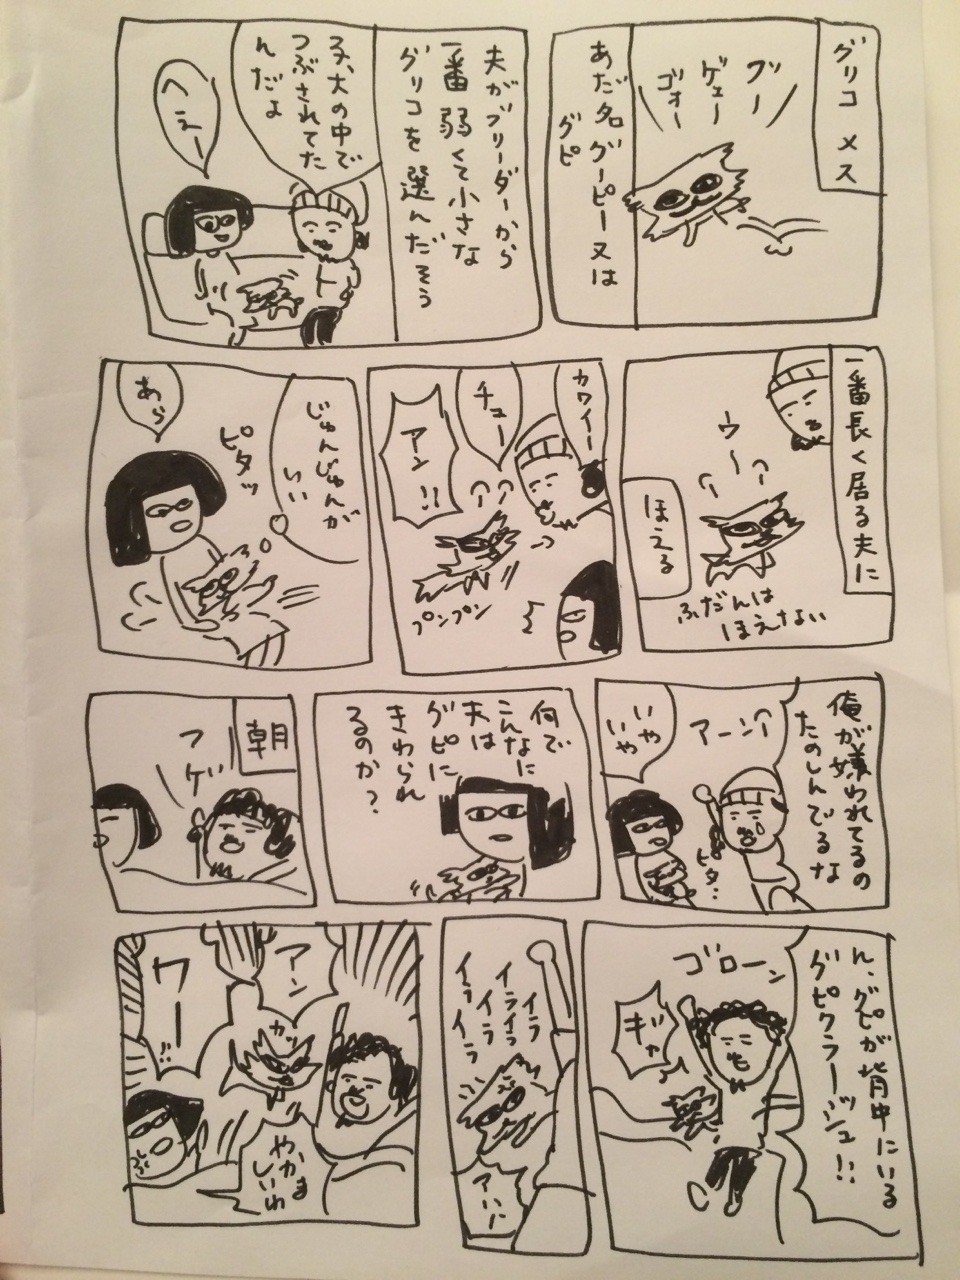 グリコ メス
グー
ゲュー
ゴォー
あだ名グーピー又は
グピ
夫がブリーダーから
一番弱くて小さな
グリコを選んだそう
子犬の中で
つぶされてた
んだよ
へぇー
一番長く居る夫に
ウ〜
ほえる
ふだんは
ほえない
カワイー
チュー
アン!!
プンプン
じゅんじゅんが
いい
ピタッ
あら
俺が嫌われてるの
たのしんでるな
アーン
いやや
ピタ…
何で
こんなに
夫は
グピに
きわられ
るのか?
朝
ん、グピが背中にいる
グピクラーッシュ!!
ゴローン
ギャ
イラ
イライラ
イライラ
イライラ
アン
ワー!!
カッ
やかま
しいわ